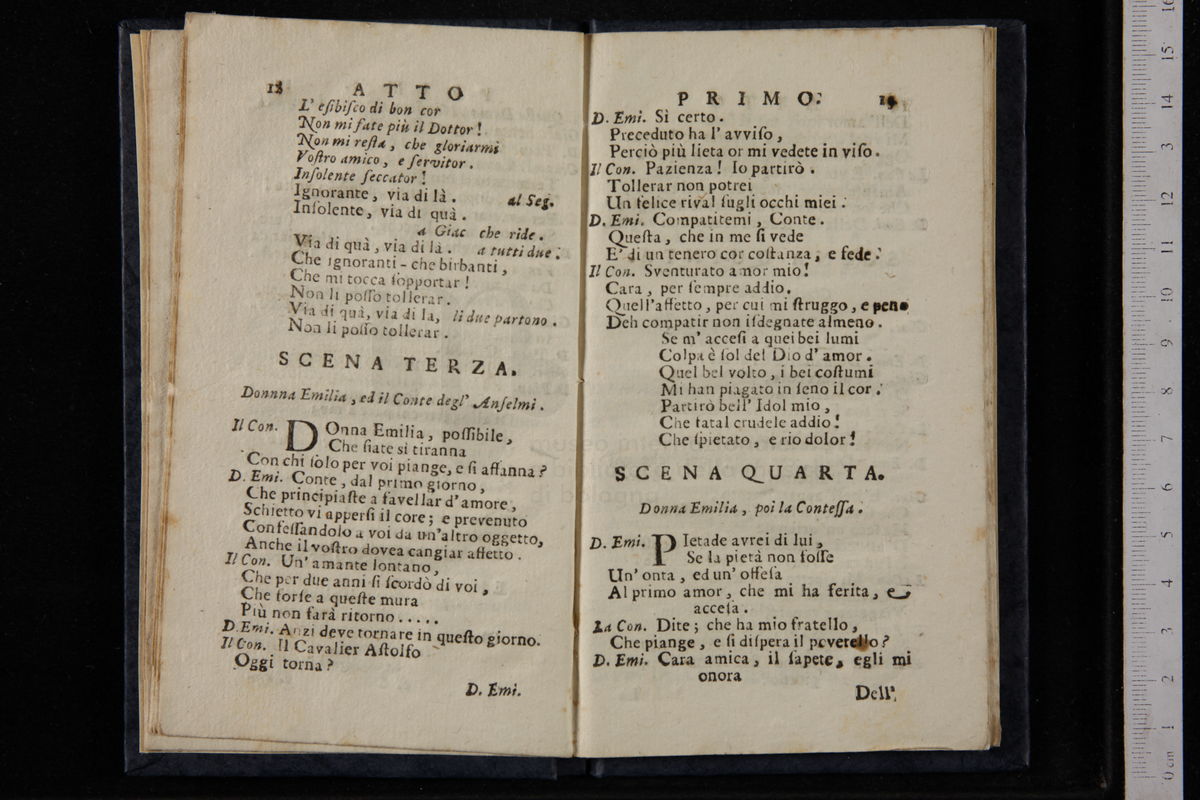 18 ATTO
L' eſibiſco di bon cor
Non mi fate più il Dottor!
Non mi reſta, che gloriarmi
Voſtro amico, e ſervitor.
Inſolente ſeccator!
Ignorante, via di là. al Seg.
Inſolente, via di quà.
a Giac che ride.
Via di quà, via di là. a tutti due.
Che ignoranti - che birbanti,
Che mi tocca ſopportar!
Non li poſſo tollerar.
Via di quà, via di la, li due partono.
Non li poſſo tollerar.
SCENA TERZA.
Donnna Emilia, ed il Conte degl' Anſelmi.
Il Con. DOnna Emilia, poſſibile,
Che ſiate sì tiranna
Con chi ſolo per voi piange, e ſi affanna?
D. Emi. Conte, dal primo giorno,
Che principiaſte a favellar d'amore,
Schietto vi apperſi il core; e prevenuto
Confeſſandolo a voi da un'altro oggetto,
Anche il voſtro dovea cangiar affetto.
Il Con. Un' amante lontano,
Che per due anni ſi ſcordò di voi,
Che forſe a queſte mura
Più non farà ritorno.....
D. Emi. Anzi deve tornare in queſto giorno.
Il Con. Il Cavalier Aſtolfo
Oggi torna?
D. Emi.
PRIMO. 19
D. Emi. Sì certo.
Preceduto ha l' avviſo,
Perciò più lieta or mi vedete in viſo.
Il Con. Pazienza! Io partirò.
Tollerar non potrei
Un felice rival ſugli occhi miei.
D. Emi. Compatitemi, Conte.
Queſta, che in me ſi vede
E' di un tenero cor coſtanza, e fede.
Il Con. Sventurato amor mio!
Cara, per ſempre addio.
Quell'affetto, per cui mi ſtruggo, e peno
Deh compatir non iſdegnate almeno.
Se m' acceſi a quei bei lumi
Colpa è ſol del Dio d' amor.
Quel bel volto, i bei coſtumi
Mi han piagato in ſeno il cor.
Partirò bell' Idol mio,
Che fatal crudele addio!
Che ſpietato, e rio dolor!
SCENA QUARTA.
Donna Emilia, poi la Conteſſa.
D. Emi. PIetade avrei di lui,
Se la pietà non foſſe
Un' onta, ed un' offeſa
Al primo amor, che mi ha ferita, e
acceſa.
La Con. Dite; che ha mio fratello,
Che piange, e ſi diſpera il poverello?
D. Emi. Cara amica, il ſapete, egli mi
onora
Dell'